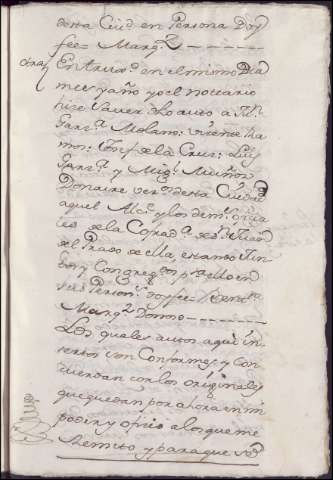 desta Ciud en Persona Doy
fee= Marqz
otra En Anxar.a en el mismo Dia
mes y año yo el notario
hize Saver dho auto a Fr.co
Garz.a Molano: Vizente Ra
mos: Josef de la Cruz: Luis
Garz.a y Mig.l Muñoz
Donaire vez.os desta Ciudad
aquel M.or y los dem.s ofizia
les de la Cofrad.a de Sn. Juan
del Prado de ella, estando Jun
tos y Congregdos p.a ello en
sus Person.s doy fee=
Marqz Donoso
Los quales autos aqui in
sertos son Conformes y Con
cuerdan con los originales
que quedan por ahora en mi
poder y ofizio a los que me
Remito y para que